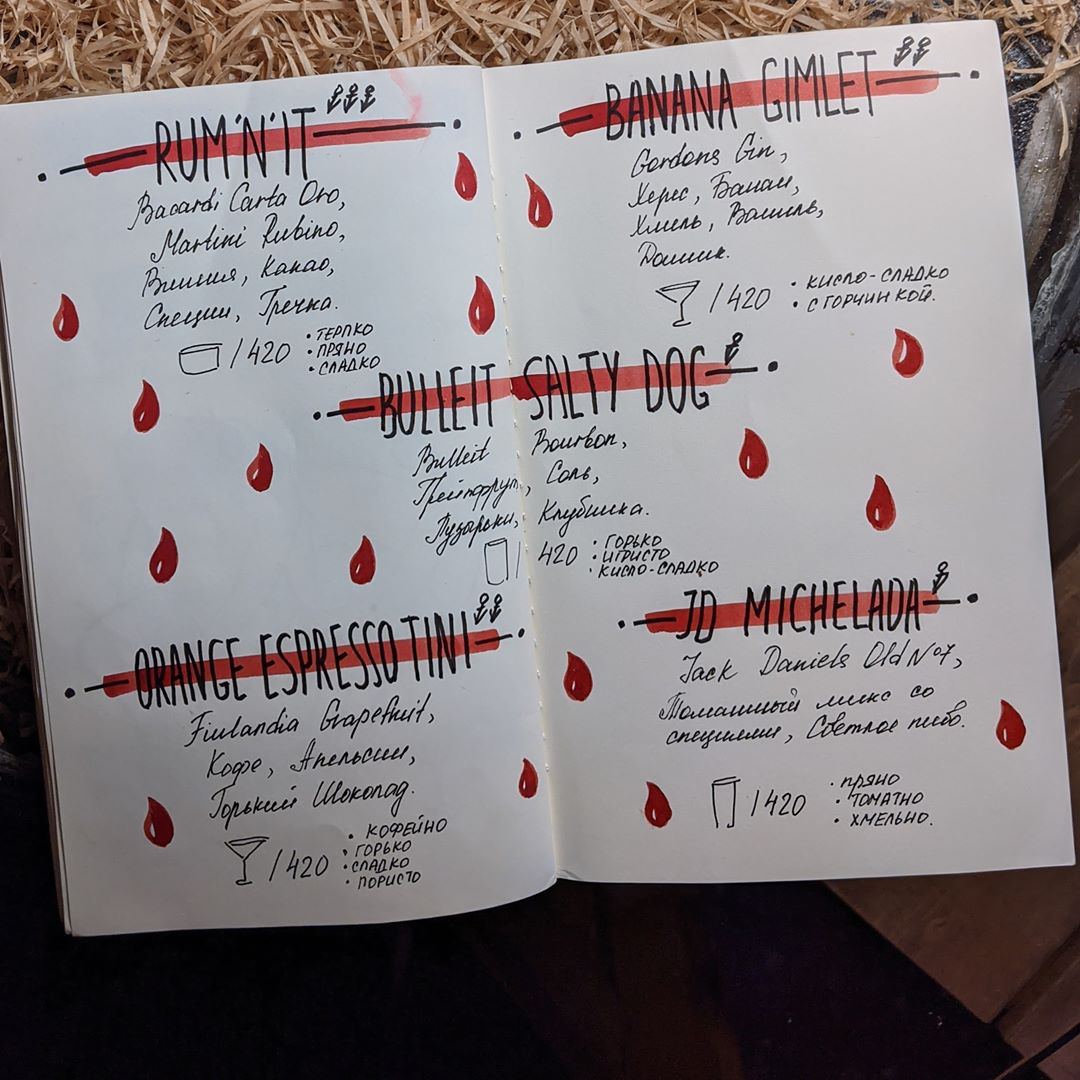 RUM'N'IT
Bacardi Carta Oro,
Martini Rubino,
Вишня, Какао,
Специи, Гречка.
/420
• ТЕРПКО
• ПРЯНО
• СЛАДКО
BANANA GIMLET
Gordons Gin,
Херес, Банан,
Хмель, Ваниль,
/420
• КИСЛО-СЛАДКО
• С ГОРЧИНКОЙ.
BULLEIT SALTY DOG
Bulleit Bourbon,
Грейпфрут, Соль,
Пузырьки, Клубника.
/ 420
• ГОРЬКО
• ИГРИСТО
• КИСЛО-СЛАДКО
ORANGE ESPRESSO TINI
Finlandia Grapefruit,
Кофе, Апельсин,
Горький Шоколад.
/420
• КОФЕЙНО
• ГОРЬКО
• СЛАДКО
• ПОРИСТО
JD MICHELADA
Jack Daniels Old №7,
Томатный микс со
специями, Светлое пиво.
/420
• ПРЯНО
• ТОМАТНО
• ХМЕЛЬНО.